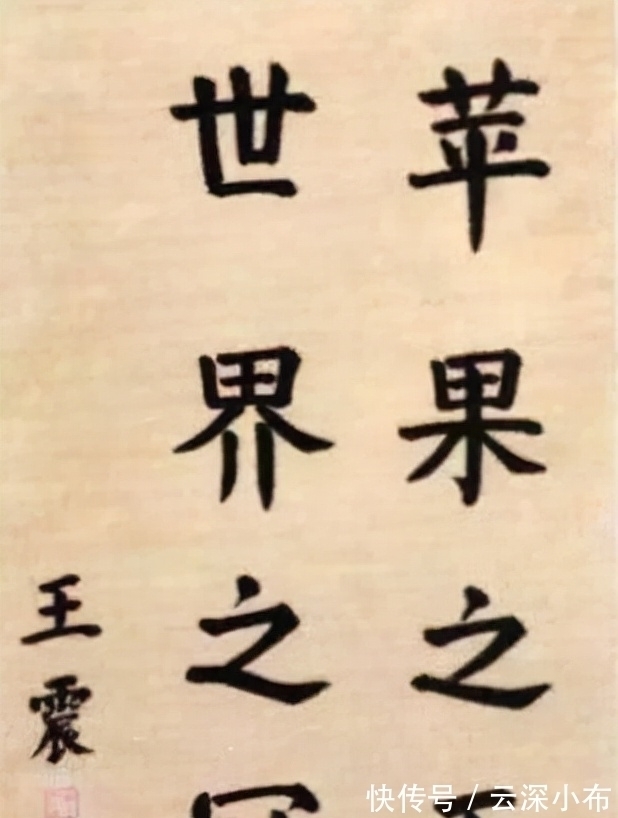 苹果之
世界之
王震
快传号 / 云深小布